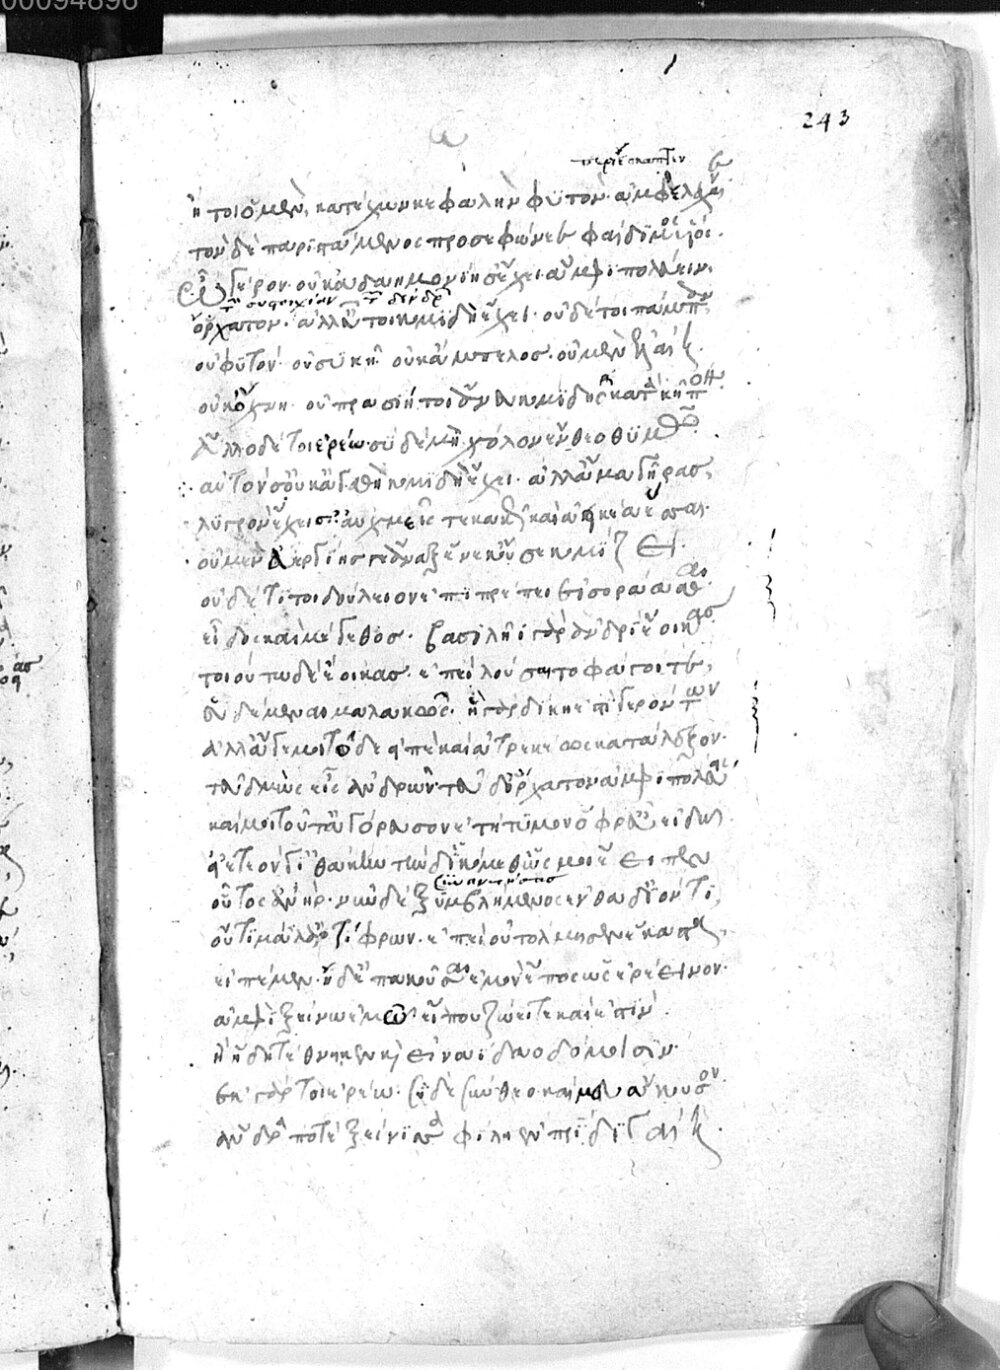 243
περιέσκαπτεν
ἤτοι ὁ μὲν κατέχων κεφαλὴν φυτὸν ἀμφελάχαινε
τὸν δὲ παριστάμενος προσεφώνεε φαίδιμος υἱός.
ὦ γέρον. οὐκ ἀδαημονίη σ' ἔχει ἀμφιπολεύειν.
ὄρχατον. ἀλλ' εὖ τοι κομιδὴ ἔχει. οὐδέ τοι πάμπαν.
οὐ φυτόν. οὐ συκῆ. οὐκ ἄμπελος. οὐ μὲν ἐλαίη.
οὐκ ὄχνη. οὐ πρασιή τοι ἄνευ κομιδῆς κατὰ κῆπον.
ἄλλο δέ τοι ἐρέω. σὺ δὲ μὴ χόλον ἔνθεο θυμῷ.
αὐτόν σ' οὐκ ἀγαθὴ κομιδὴ ἔχει. ἀλλ' ἅμα γῆρας.
λυγρὸν ἔχεις αὐχμεῖς τε κακῶς καὶ ἀεικέα ἕσσαι.
οὐ μὲν ἀεργίης γε ἄναξ ἕνεκ' οὔ σε κομίζει.
οὐδέ τί τοι δούλειον ἐπιπρέπει εἰσοράασθαι.
εἶδος καὶ μέγεθος. βασιλῆι γὰρ ἀνδρὶ ἔοικας.
τοιούτω δὲ ἔοικας. ἐπεὶ λούσαιτο φάγοι τε.
εὑδέμεναι μαλακῶς. ἡ γὰρ δίκη ἐστὶ γερόντων
ἀλλ' ἄγε μοι τόδε εἰπὲ καὶ ἀτρεκέως κατάλεξον.
τεῦ δμώς εἰς ἀνδρῶν. τεῦ δ' ὄρχατον ἀμφιπολεύεις
καί μοι τοῦτ' ἀγόρευσον ἐτήτυμον ὄφρ' εὖ εἰδῶ.
εἰ ἐτεόν γ' ἰθάκην τήνδ' ἱκόμεθ' ὥς μοι ἔειπεν
οὗτος ἀνήρ. νῦν δὲ ξυμβλήμενος ἐνθάδ' ἰόντι.
οὔτι μάλ' ἀρτίφρων. ἐπεὶ οὐ τόλμησεν ἕκαστα.
εἰπέμεν. ἠδ' ἐπακοῦσαι ἐμὸν ἔπος ὡς ἐρέεινον.
ἀμφὶ ξείνω ἐμῶ. εἴ που ζώει τε καὶ ἐστίν.
ἢ ἤδη τέθνηκεν καὶ εἰν ἀίδαο δόμοισιν.
ἐκ γάρ τοι ἐρέω. σὺ δὲ σύνθεο καί μευ ἄκουσον.
ἄνδρα ποτὲ ξείνισσα φίλη ἐν πατρίδι γαίη.